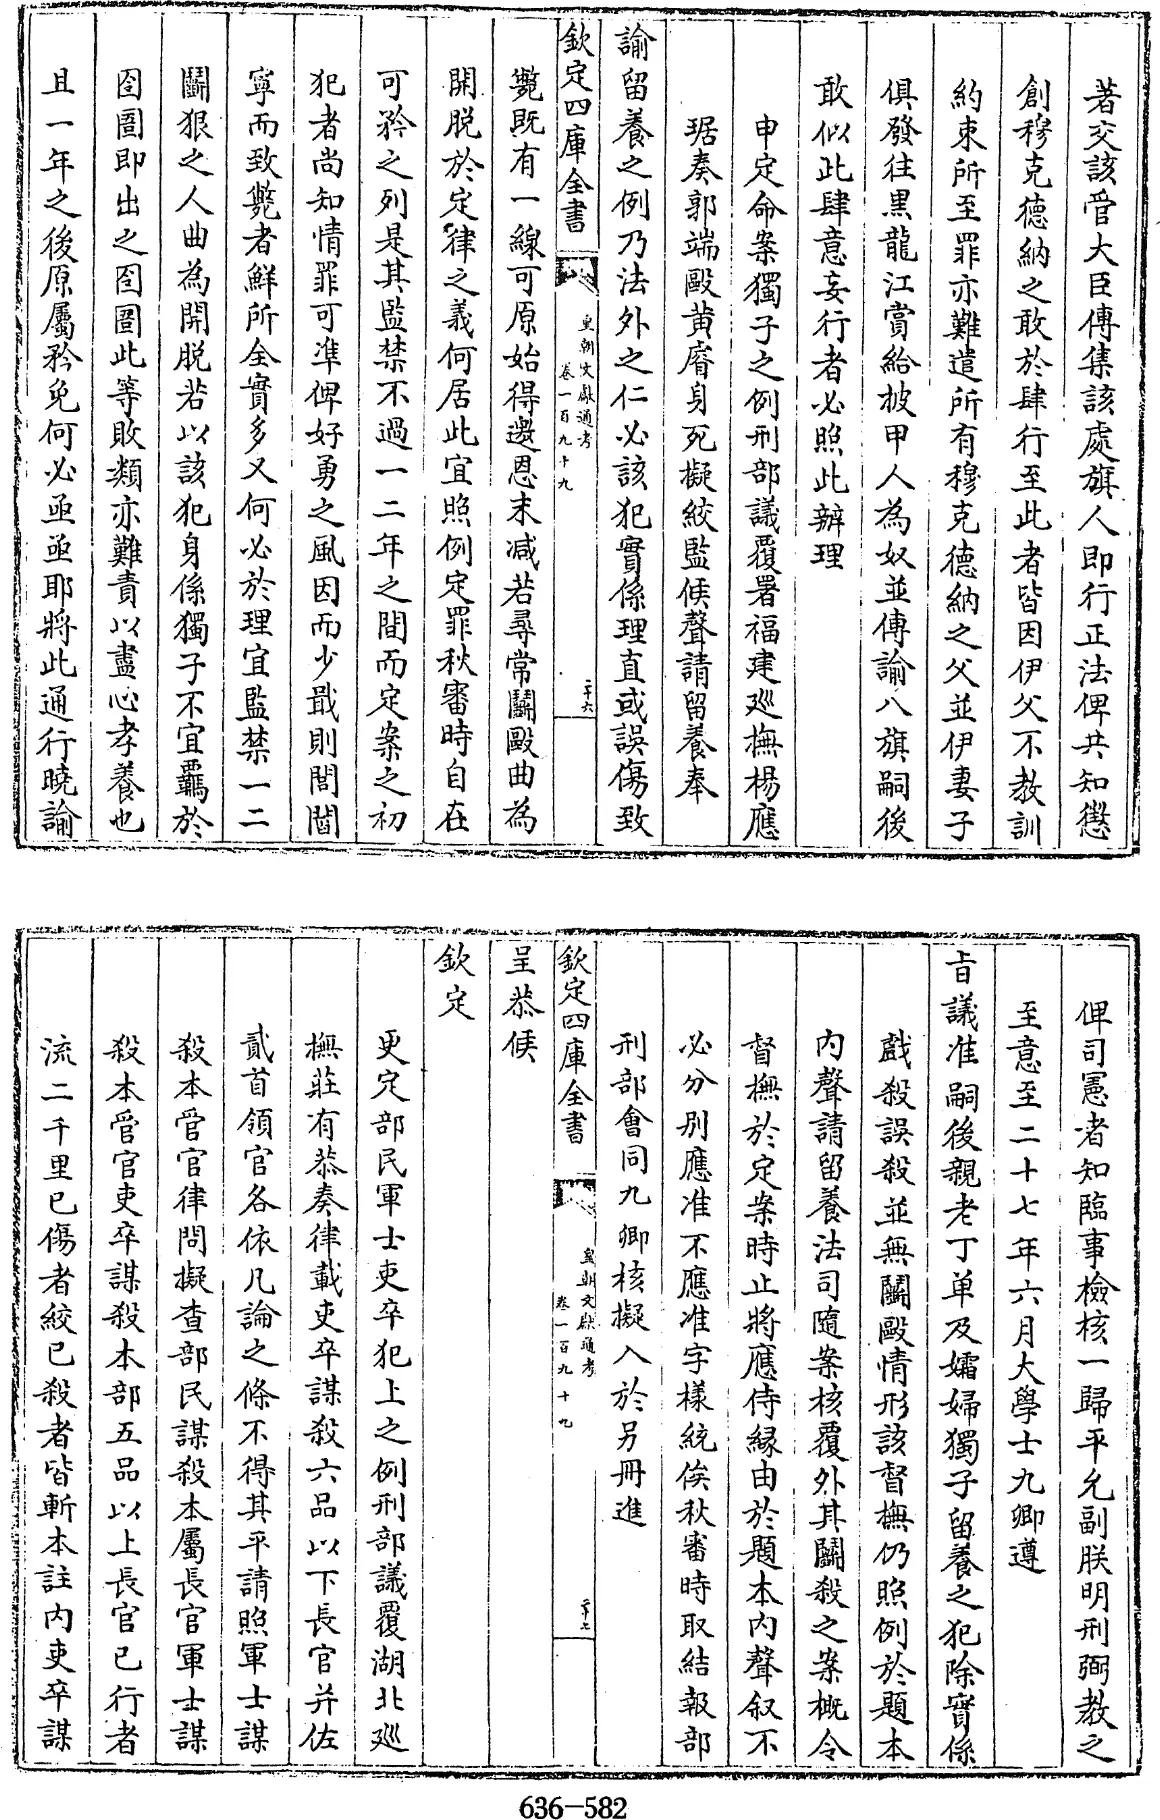 著交該管大臣傳集該處旗人即行正法俾共知懲
創穆克德納之敢於肆行至此者皆因伊父不教訓
約束所至罪亦難逭所有穆克德納之父並伊妻子
俱發往黒龍江賞給披甲人為奴並傳諭八旗嗣後
敢似此肆意妄行者必照此辦理
申定命案獨子之例刑部議覆署福建廵撫楊應
琚奏郭端毆黄㾾身死擬絞監候聲請留養奉
諭留養之例乃法外之仁必該犯實係理直或誤傷致
欽定四庫全書
皇朝文獻通考
卷一百九十九
二十六
斃既有一線可原始得邀恩末減若尋常鬭毆曲為
開脱於定律之義何居此宜照例定罪秋審時自在
可矜之列是其監禁不過一二年之間而定案之初
犯者尚知情罪可凖俾好勇之風因而少戢則閭閻
寧而致斃者鮮所全實多又何必於理宜監禁一二
鬭狠之人曲為開脱若以該犯身係獨子不宜羈於
囹圄即出之囹圄此等敗類亦難責以盡心孝養也
且一年之後原屬矜免何必亟亟耶將此通行曉諭
俾司憲者知臨事檢核一歸平允副朕明刑弼教之
至意至二十七年六月大學士九卿遵
㫖議准嗣後親老丁单及孀婦獨子留養之犯除實係
戯殺誤殺並無鬭毆情形該督撫仍照例於題本
内聲請留養法司隨案核覆外其鬭殺之案概令
督撫於定案時止將應侍縁由於題本内聲叙不
必分别應准不應准字様統俟秋審時取結報部
刑部會同九卿核擬入於另冊進
欽定四庫全書
皇朝文獻通考
卷一百九十九
二十七
呈恭候
欽定
更定部民軍士吏卒犯上之例刑部議覆湖北廵
撫莊有恭奏律載吏卒謀殺六品以下長官并佐
貳首領官各依凡論之條不得其平請照軍士謀
殺本管官律問擬查部民謀殺本屬長官軍士謀
殺本管官吏卒謀殺本部五品以上長官已行者
流二千里已傷者絞已殺者皆斬本註内吏卒謀
636-582